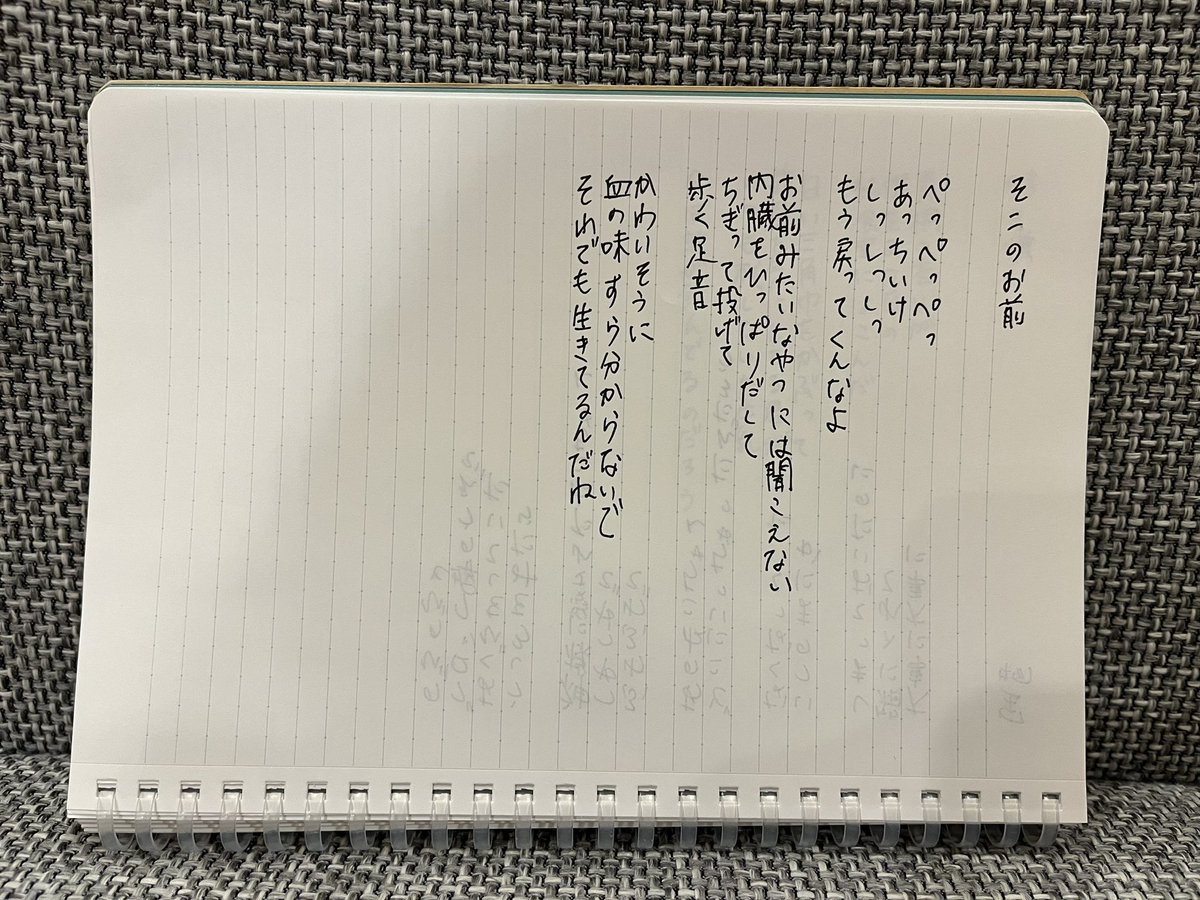 そこのお前
ぺっぺっぺっ
あっちいけ
しっしっしっ
もう戻ってくんなよ
お前みたいなやつには聞こえない
内臓をひっぱりだして
ちぎって投げて
歩く足音
かわいそうに
血の味すら分からないで
それでも生きてるんだね